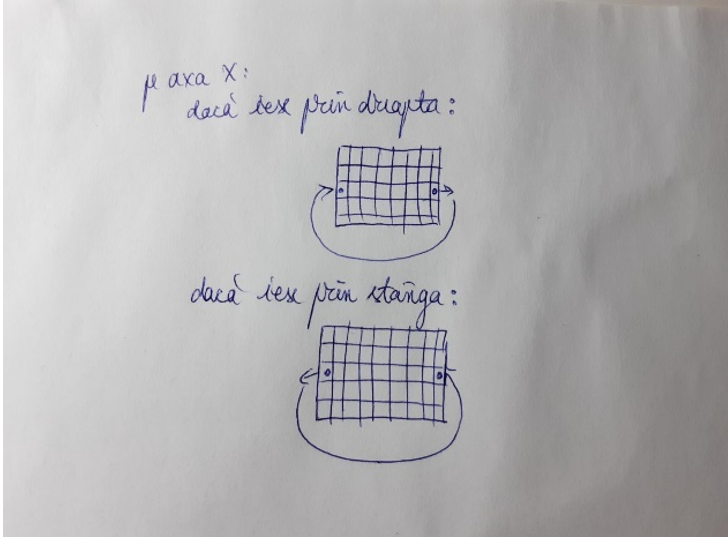 pe axa X:
dacă iese prin dreapta:
dacă iese prin stânga: